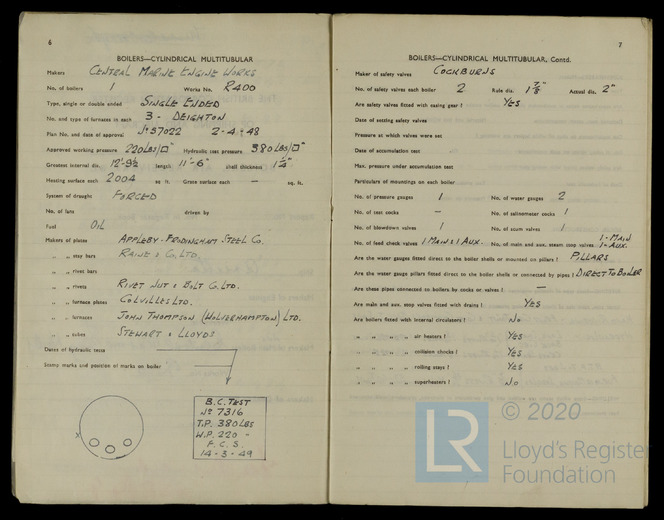 6
BOILERS—CYLINDRICAL MULTITUBULAR
Makers CENTRAL MARINE ENGINE WORKS
No. of boilers 1 Works No. R400
Type, single or double ended SINGLE ENDED
No. and type of furnaces in each 3 - DEIGHTON
Plan No. and date of approval No 37022 2-4-48
Approved working pressure 220 LBS/□" Hydraulic test pressure 380 LBS/□"
Greatest internal dia. 12'-9½ length 11'-6" shell thickness 1¼"
Heating surface each 2004 sq. ft. Grate surface each — sq. ft.
System of draught FORCED
No. of fans driven by
Fuel OIL
Makers of plates APPLEBY-FRODINGHAM STEEL CO.
„ „ stay bars RAINE & CO. LTD.
„ „ rivet bars
„ „ rivets RIVET NUT & BOLT CO. LTD.
„ „ furnace plates COLVILLES LTD.
„ „ furnaces JOHN THOMPSON (WOLVERHAMPTON) LTD.
„ „ tubes STEWART & LLOYDS
Dates of hydraulic tests
Stamp marks and position of marks on boiler
x
B.C. TEST
No 7316
T.P. 380 LBS
W.P. 220 -
F.C.S.
14-3-49
7
BOILERS—CYLINDRICAL MULTITUBULAR, Contd.
Maker of safety valves COCKBURNS
No. of safety valves each boiler 2 Rule dia. 1⅞" Actual dia. 2"
Are safety valves fitted with easing gear? YES
Date of setting safety valves
Pressure at which valves were set
Date of accumulation test
Max. pressure under accumulation test
Particulars of mountings on each boiler
No. of pressure gauges 1 No. of water gauges 2
No. of test cocks — No. of salinometer cocks 1
No. of blowdown valves 1 No. of scum valves 1
No. of feed check valves 1 MAIN & 1 AUX. No. of main and aux. steam stop valves 1-MAIN 1-AUX.
Are the water gauges fitted direct to the boiler shells or mounted on pillars? PILLARS
Are the water gauge pillars fitted direct to the boiler shells or connected by pipes? DIRECT TO BOILER
Are these pipes connected to boilers by cocks or valves? —
Are main and aux. stop valves fitted with drains? YES
Are boilers fitted with internal circulators? NO
„ „ „ „ air heaters? YES
„ „ „ „ collision chocks? YES
„ „ „ „ rolling stays? YES
„ „ „ „ superheaters? NO
LR
© 2020
Lloyd's Register
Foundation